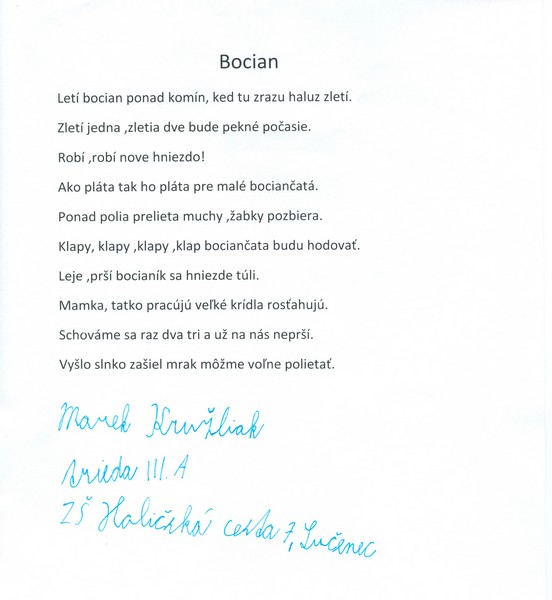 Bocian
Letí bocian ponad komín, ked tu zrazu haluz zletí.
Zletí jedna ,zletia dve bude pekné počasie.
Robí ,robí nove hniezdo!
Ako pláta tak ho pláta pre malé bociančatá.
Ponad polia prelieta muchy ,žabky pozbiera.
Klapy, klapy ,klapy ,klap bociančata budu hodovať.
Leje ,prší bocianík sa hniezde túli.
Mamka, tatko pracújú veľké krídla rosťahujú.
Schováme sa raz dva tri a už na nás neprší.
Vyšlo slnko zašiel mrak môžme voľne polietať.
Marek Kružliak
trieda III. A
ZŠ Haličská cesta 7, Lučenec